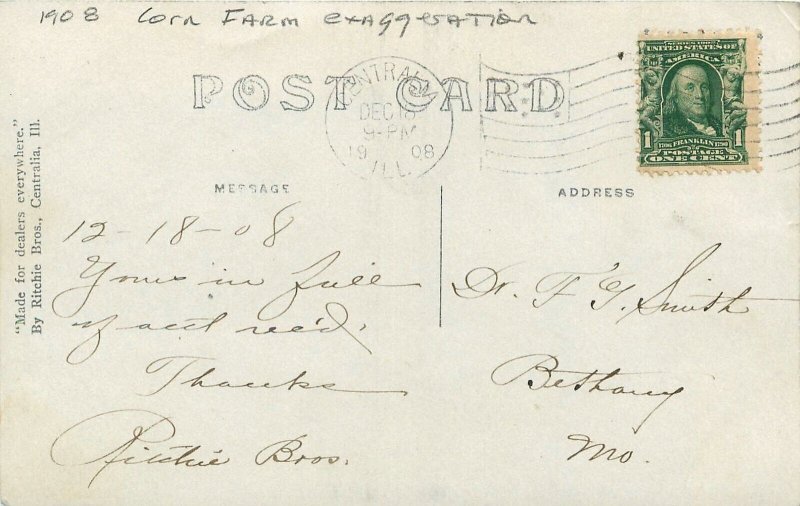 1908 Corn Farm exaggeration
POST CARD
CENTRALIA
DEC 18
9-PM
1908
ILL.
SERIES 1902
UNITED STATES OF
AMERICA
1 1706 FRANKLIN 1790 1
POSTAGE
ONE CENT
MESSAGE
ADDRESS
"Made for dealers everywhere."
By Ritchie Bros., Centralia, Ill.
12-18-08
Yours in full
of acct rec'd,
Thanks
Ritchie Bros.
Dr. F G. Smith
Bethany
Mo.